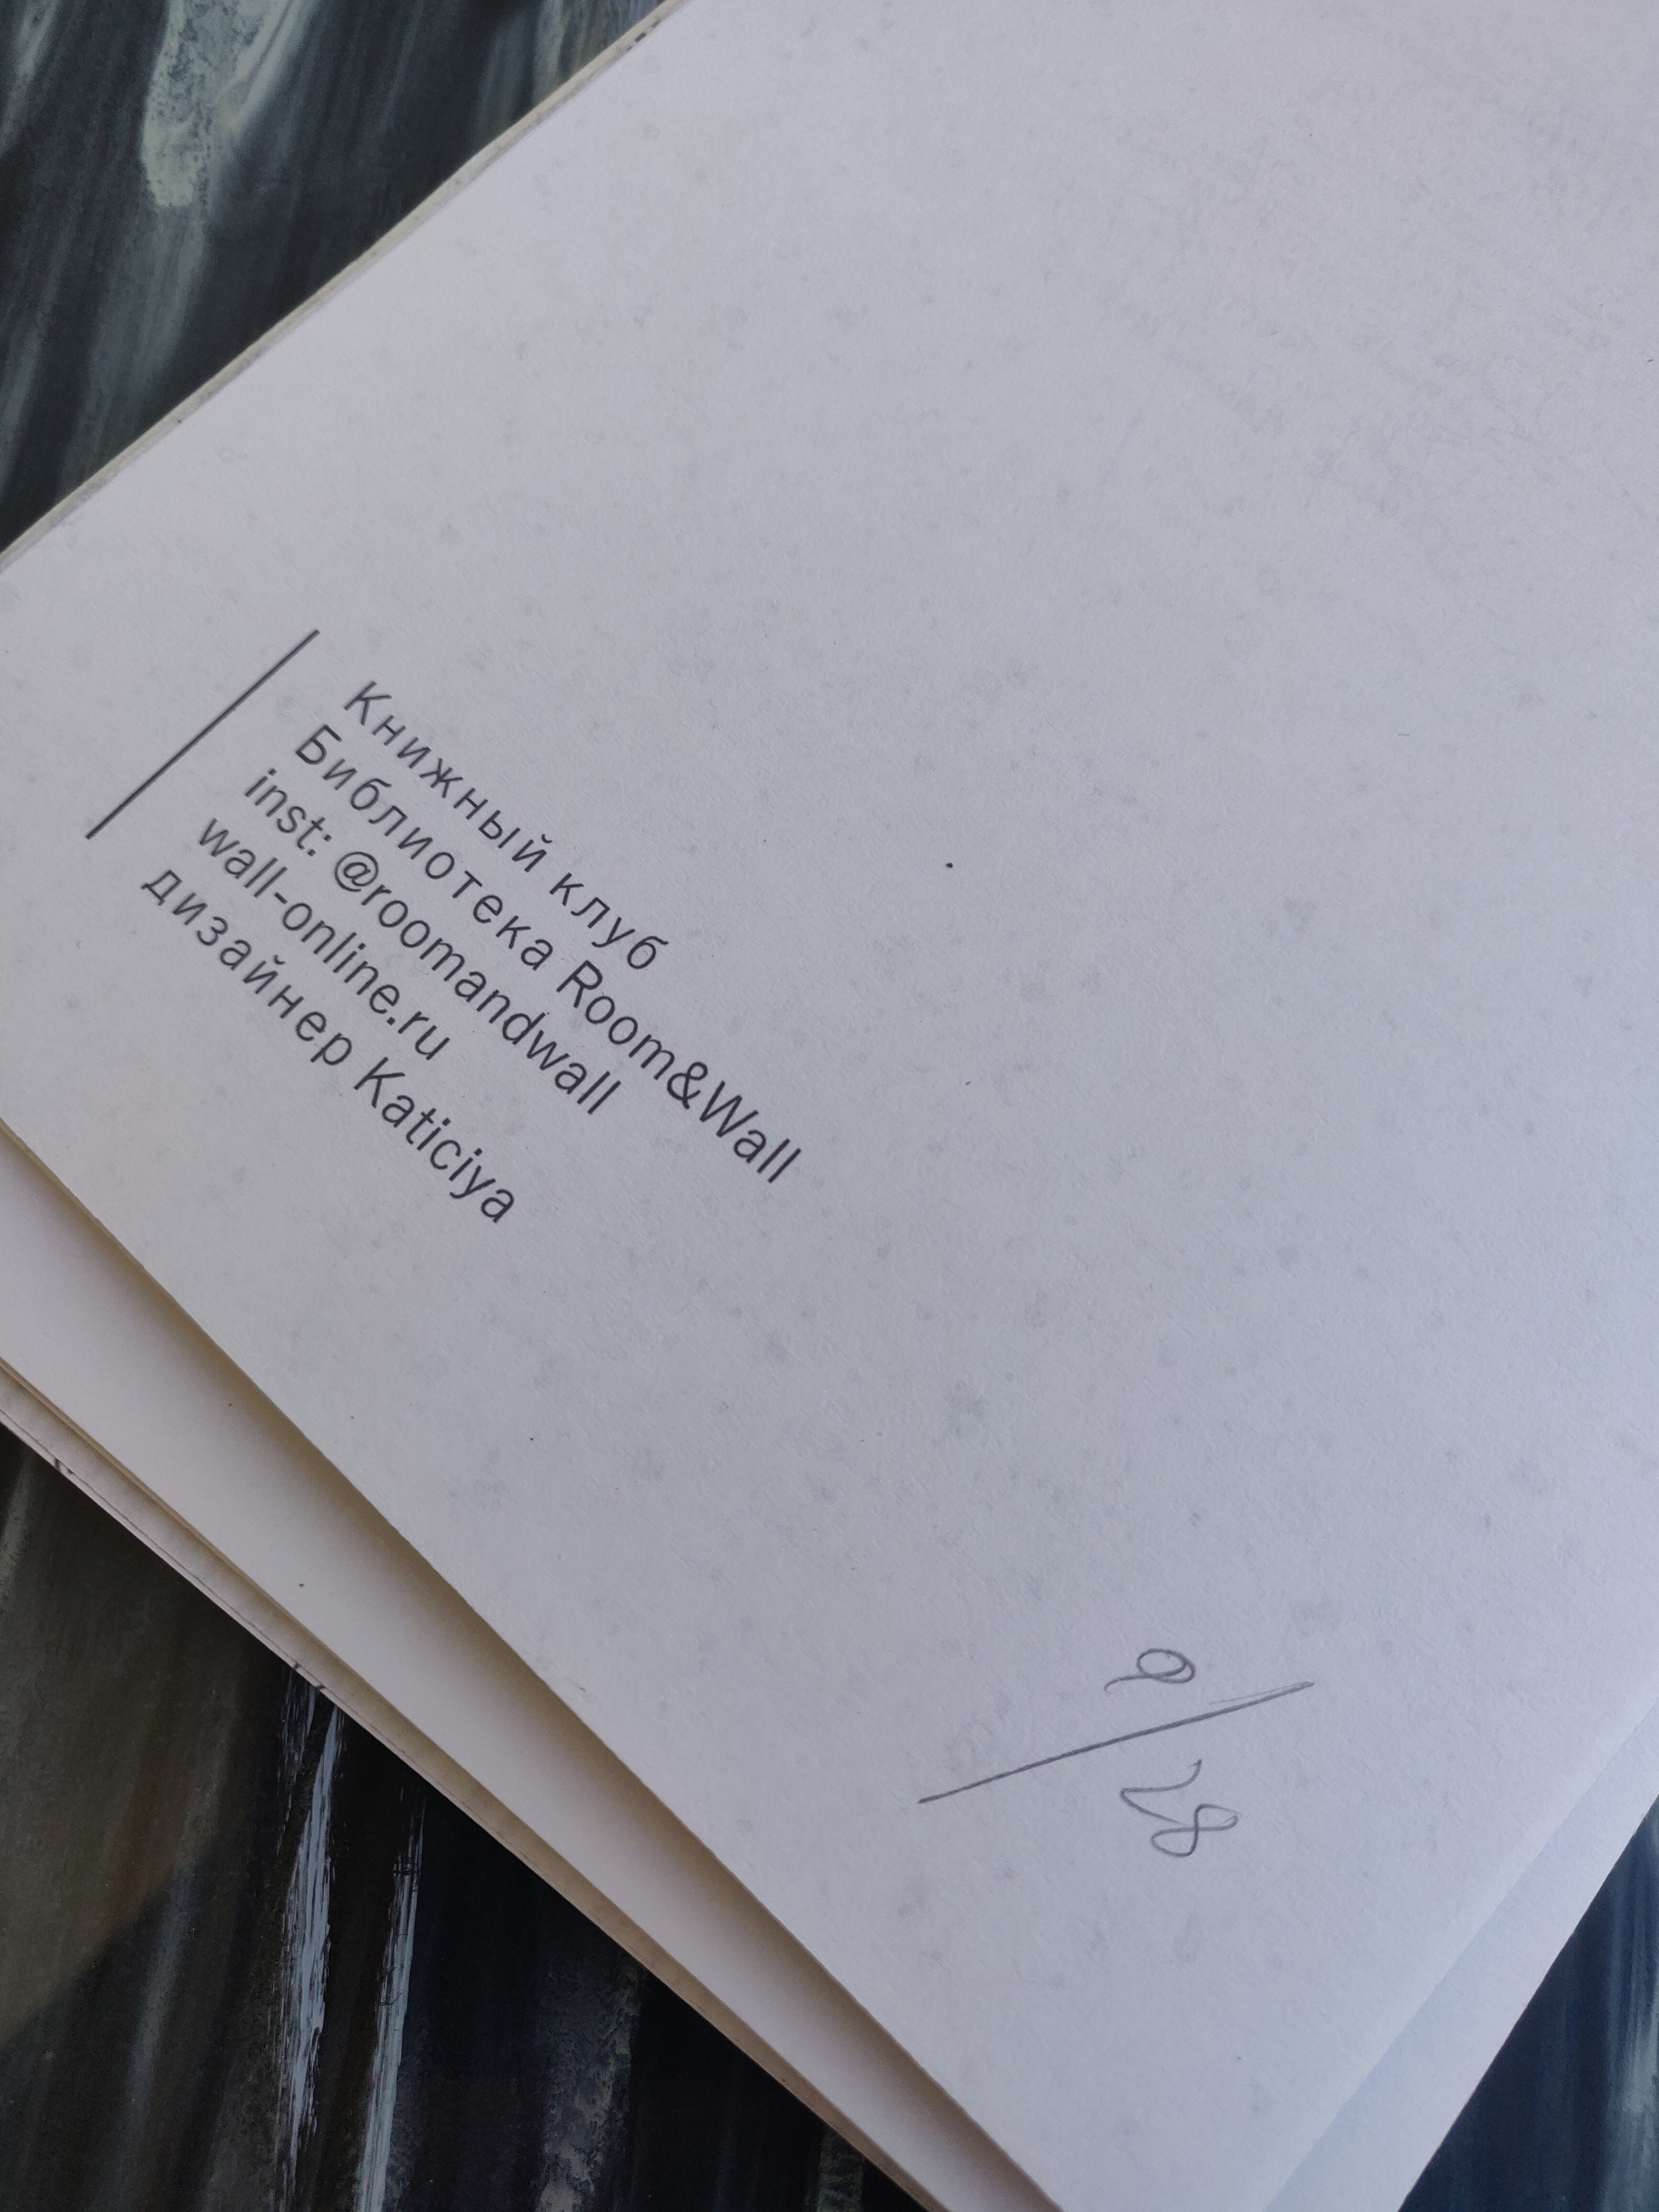 Книжный клуб
Библиотека Room&Wall
inst: @roomandwall
wall-online.ru
дизайнер Katiciya
9/28